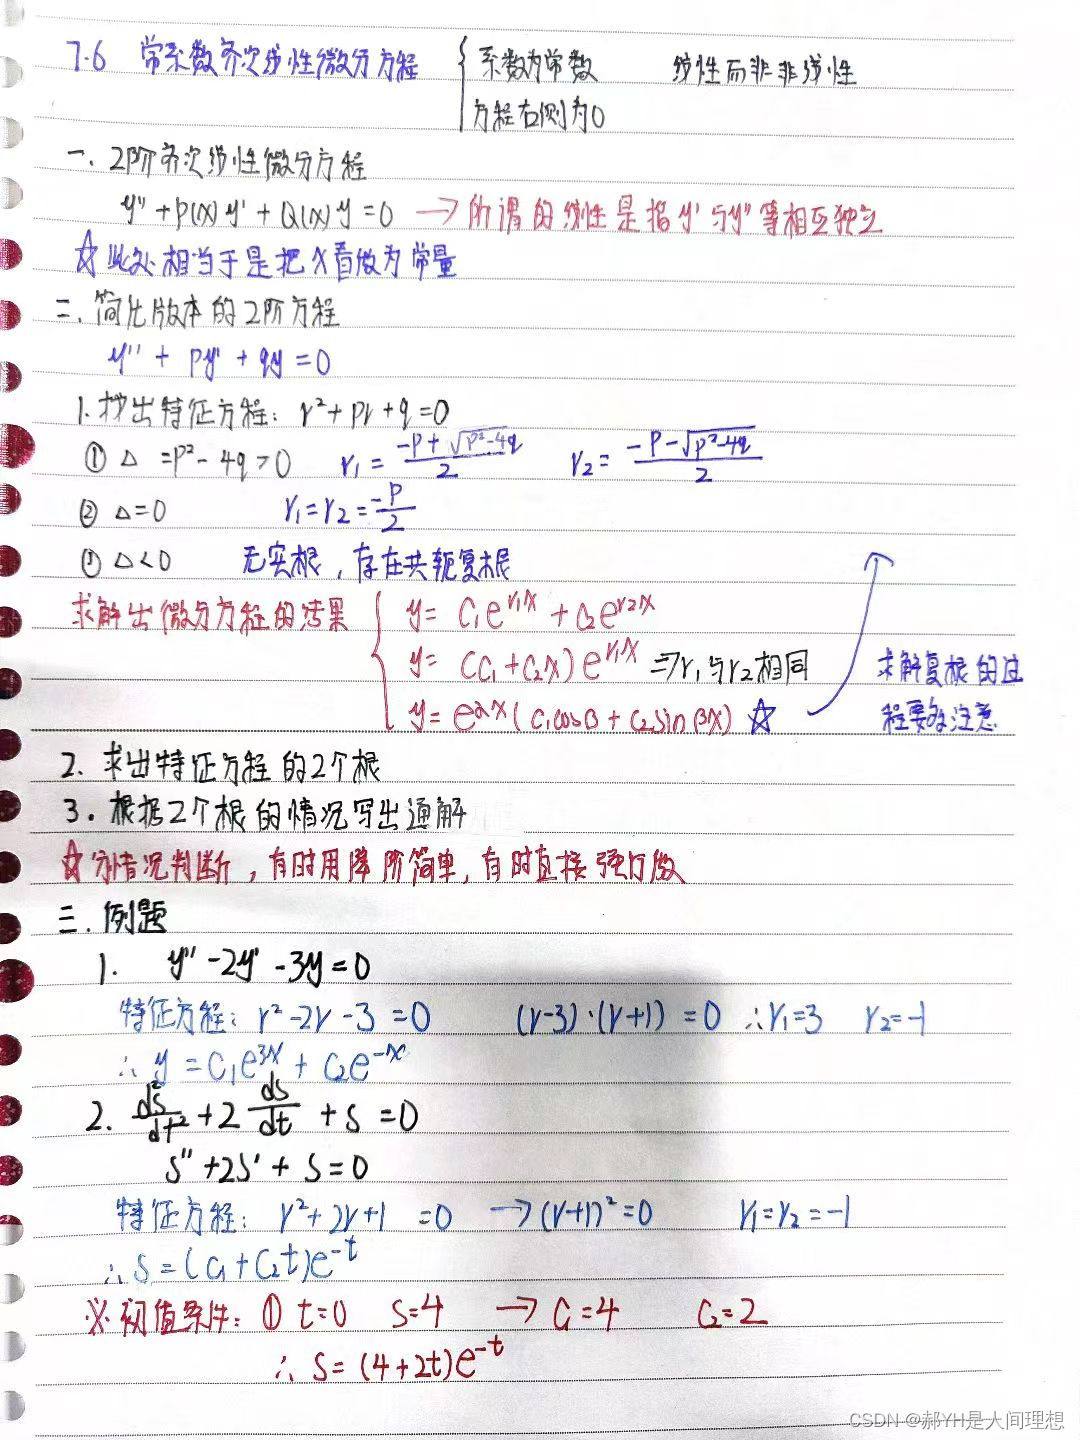 7.6 常系数齐次线性微分方程 { 系数为常数 线性而非非线性
方程右侧为0
一. 2阶齐次线性微分方程
y'' + P(x)y' + Q(x)y = 0 → 所谓的线性是指y'与y''等相互独立
☆此处相当于是把x看做为常量
二. 简化版本的2阶方程
y'' + py' + qy = 0
1. 找出特征方程: r² + pr + q = 0
① Δ = p² - 4q > 0 r₁ = (-p + √(p²-4q))/2 r₂ = (-p - √(p²-4q))/2
② Δ = 0 r₁ = r₂ = -p/2
③ Δ < 0 无实根, 存在共轭复根
求解出微分方程的结果 { y = C₁e^{r₁x} + C₂e^{r₂x}
y = (C₁ + C₂x)e^{r₁x} ⇒ r₁与r₂相同
y = e^{αx}(C₁cosβ + C₂sinβx) ☆
求解复根的过
程要多注意
2. 求出特征方程的2个根
3. 根据2个根的情况写出通解
☆分情况判断, 有时用降阶简单, 有时直接强行做
三. 例题
1. y'' - 2y' - 3y = 0
特征方程: r² - 2r - 3 = 0 (r-3)·(r+1) = 0 ∴ r₁ = 3 r₂ = -1
∴ y = C₁e^{3x} + C₂e^{-x}
2. d²s/dt² + 2 ds/dt + s = 0
s'' + 2s' + s = 0
特征方程: r² + 2r + 1 = 0 → (r+1)² = 0 r₁ = r₂ = -1
∴ s = (C₁ + C₂t)e^{-t}
※初值条件: ① t = 0 s = 4 → C₁ = 4 C₂ = 2
∴ s = (4 + 2t)e^{-t}
CSDN @郝YH是人间理想